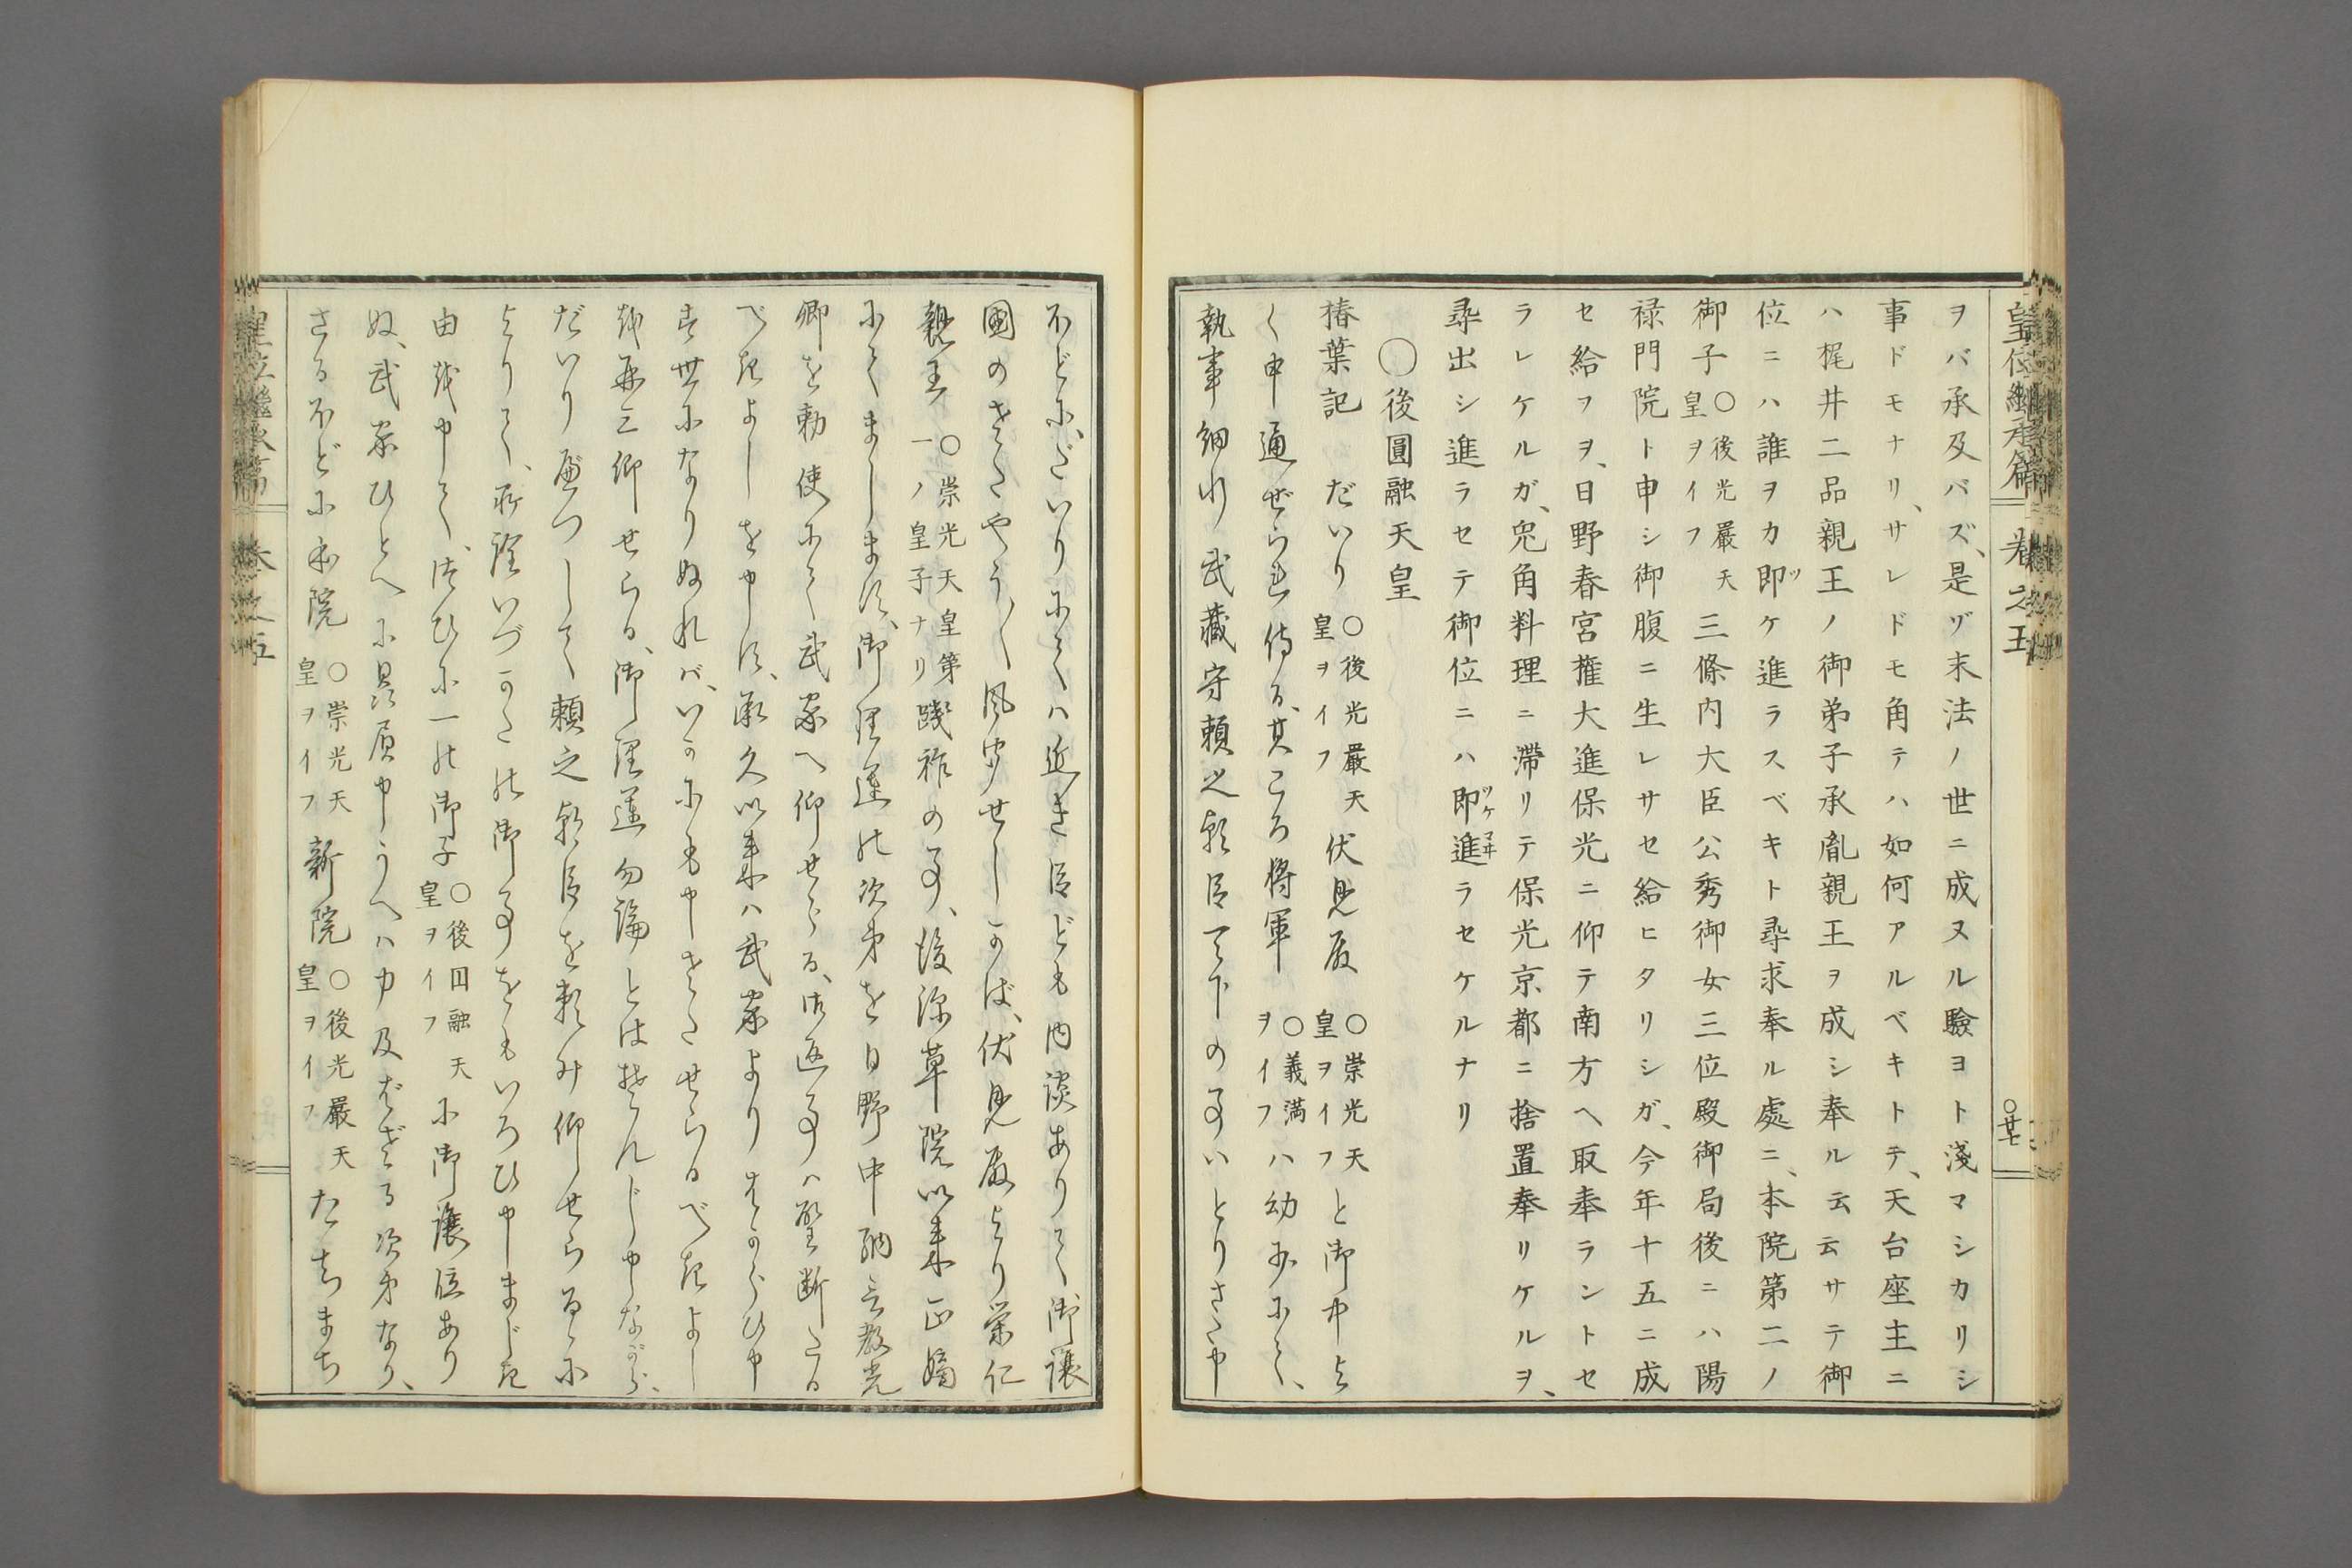 皇位繼承篇 卷之五 ○廿七
ヲバ承及バズ、是ゾ末法ノ世ニ成ヌル驗ヨト淺マシカリシ
事ドモナリ、サレドモ角テハ如何アルベキトテ、天台座主ニ
ハ梶井二品親王ノ御弟子承胤親王ヲ成シ奉ル云云サテ御
位ニハ誰ヲカ即ツケ進ラスベキト尋求奉ル處ニ、本院第二ノ
御子○後光嚴天皇ヲイフ三條内大臣公秀御女三位殿御局後ニハ陽
禄門院ト申シ御腹ニ生レサセ給ヒタリシガ、今年十五ニ成
セ給フヲ、日野春宮權大進保光ニ仰テ南方ヘ取奉ラントセ
ラレケルガ、兎角料理ニ滯リテ保光京都ニ捨置奉リケルヲ、
尋出シ進ラセテ御位ニハ即ツケ進マヰラセケルナリ
○後圓融天皇
椿葉記 だいり○後光嚴天皇ヲイフ伏見殿○崇光天皇ヲイフと御中よ
く申通ぜられ侍る、其ころ將軍○義満ヲイフハ幼少にて、
執事細川武藏守頼之朝臣天下の事いとりさた申
ほどに、だいりにてハ近き臣ども内談ありて御讓
國のさたやう〳〵風聞せしかば、伏見殿より榮仁
親王○崇光天皇第一ノ皇子ナリ踐祚の事、後深草院以來正嫡
にてましま須、御理運の次第を日野中納言教光
卿を勅使にて武家へ仰せらる、御返事ハ聖斷たる
べきよしを申須、承久以來ハ武家よりはからひ申
す世になりぬれバ、いかにも申さたせらるべきよし
を再三仰せらる、御理運勿論とは存じ申ながら、
だいり
よりて、所詮いづかたの御事をもいろひ申まじき
由を申て、つひに一の御子○後圓融天皇ヲイフに御讓位あり
ぬ、武家ひとへに贔屓申うへハ力及ばざる次第なり、
さるほどに本院○崇光天皇ヲイフ新院○後光嚴天皇ヲイフたちまち
皇位繼承篇 卷之五